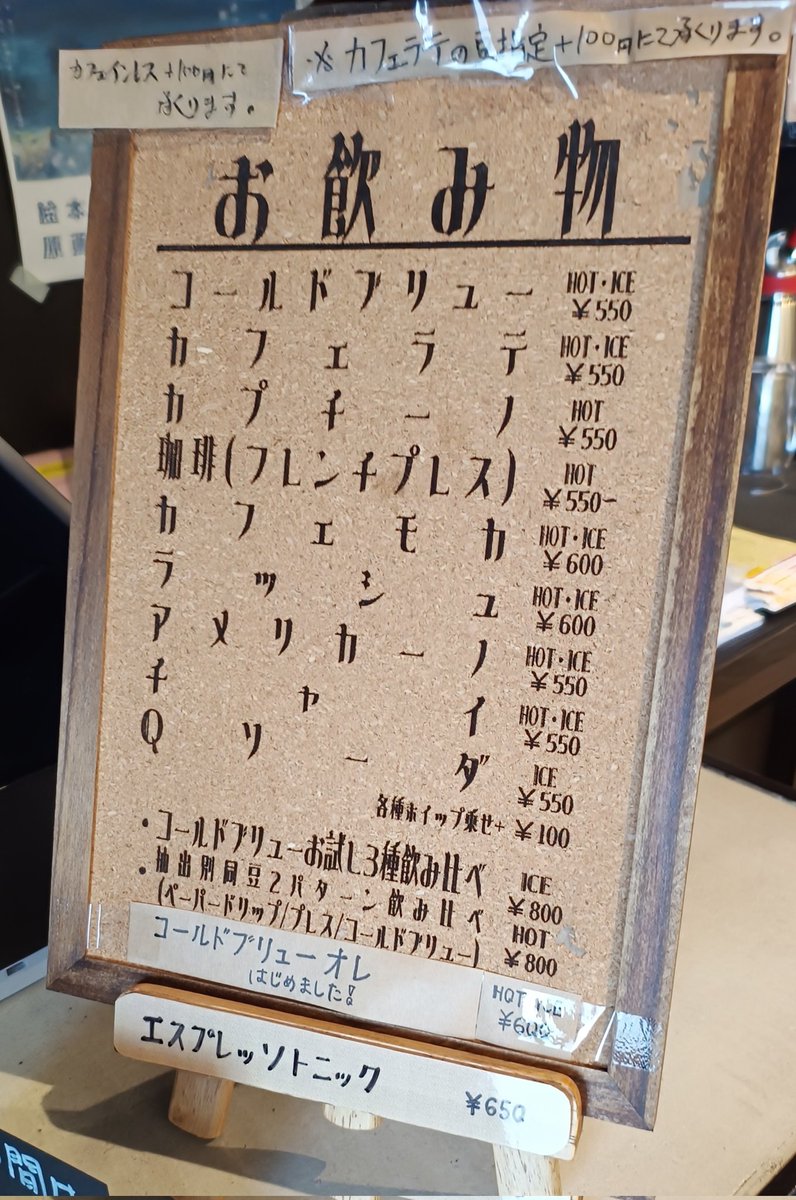 カフェインレス+100円にて
承ります。
※カフェラテの豆指定+100円にて承ります。
絵本
原画
お飲み物
コールドブリュー HOT・ICE ¥550
カフェラテ HOT・ICE ¥550
カプチーノ HOT ¥550
珈琲(フレンチプレス) HOT ¥550~
カフェモカ HOT・ICE ¥600
ラッシュ HOT・ICE ¥600
アメリカーノ HOT・ICE ¥550
チャイ HOT・ICE ¥550
Qリーダ ICE ¥550
各種ホイップ乗せ+ ¥100
・コールドブリューお試し3種飲み比べ ICE ¥800
・抽出別同豆2パターン飲み比べ HOT ¥800
(ペーパードリップ/プレス/コールドブリュー)
コールドブリューオレ HOT ¥600
はじめました!
エスプレッソトニック ¥650
間